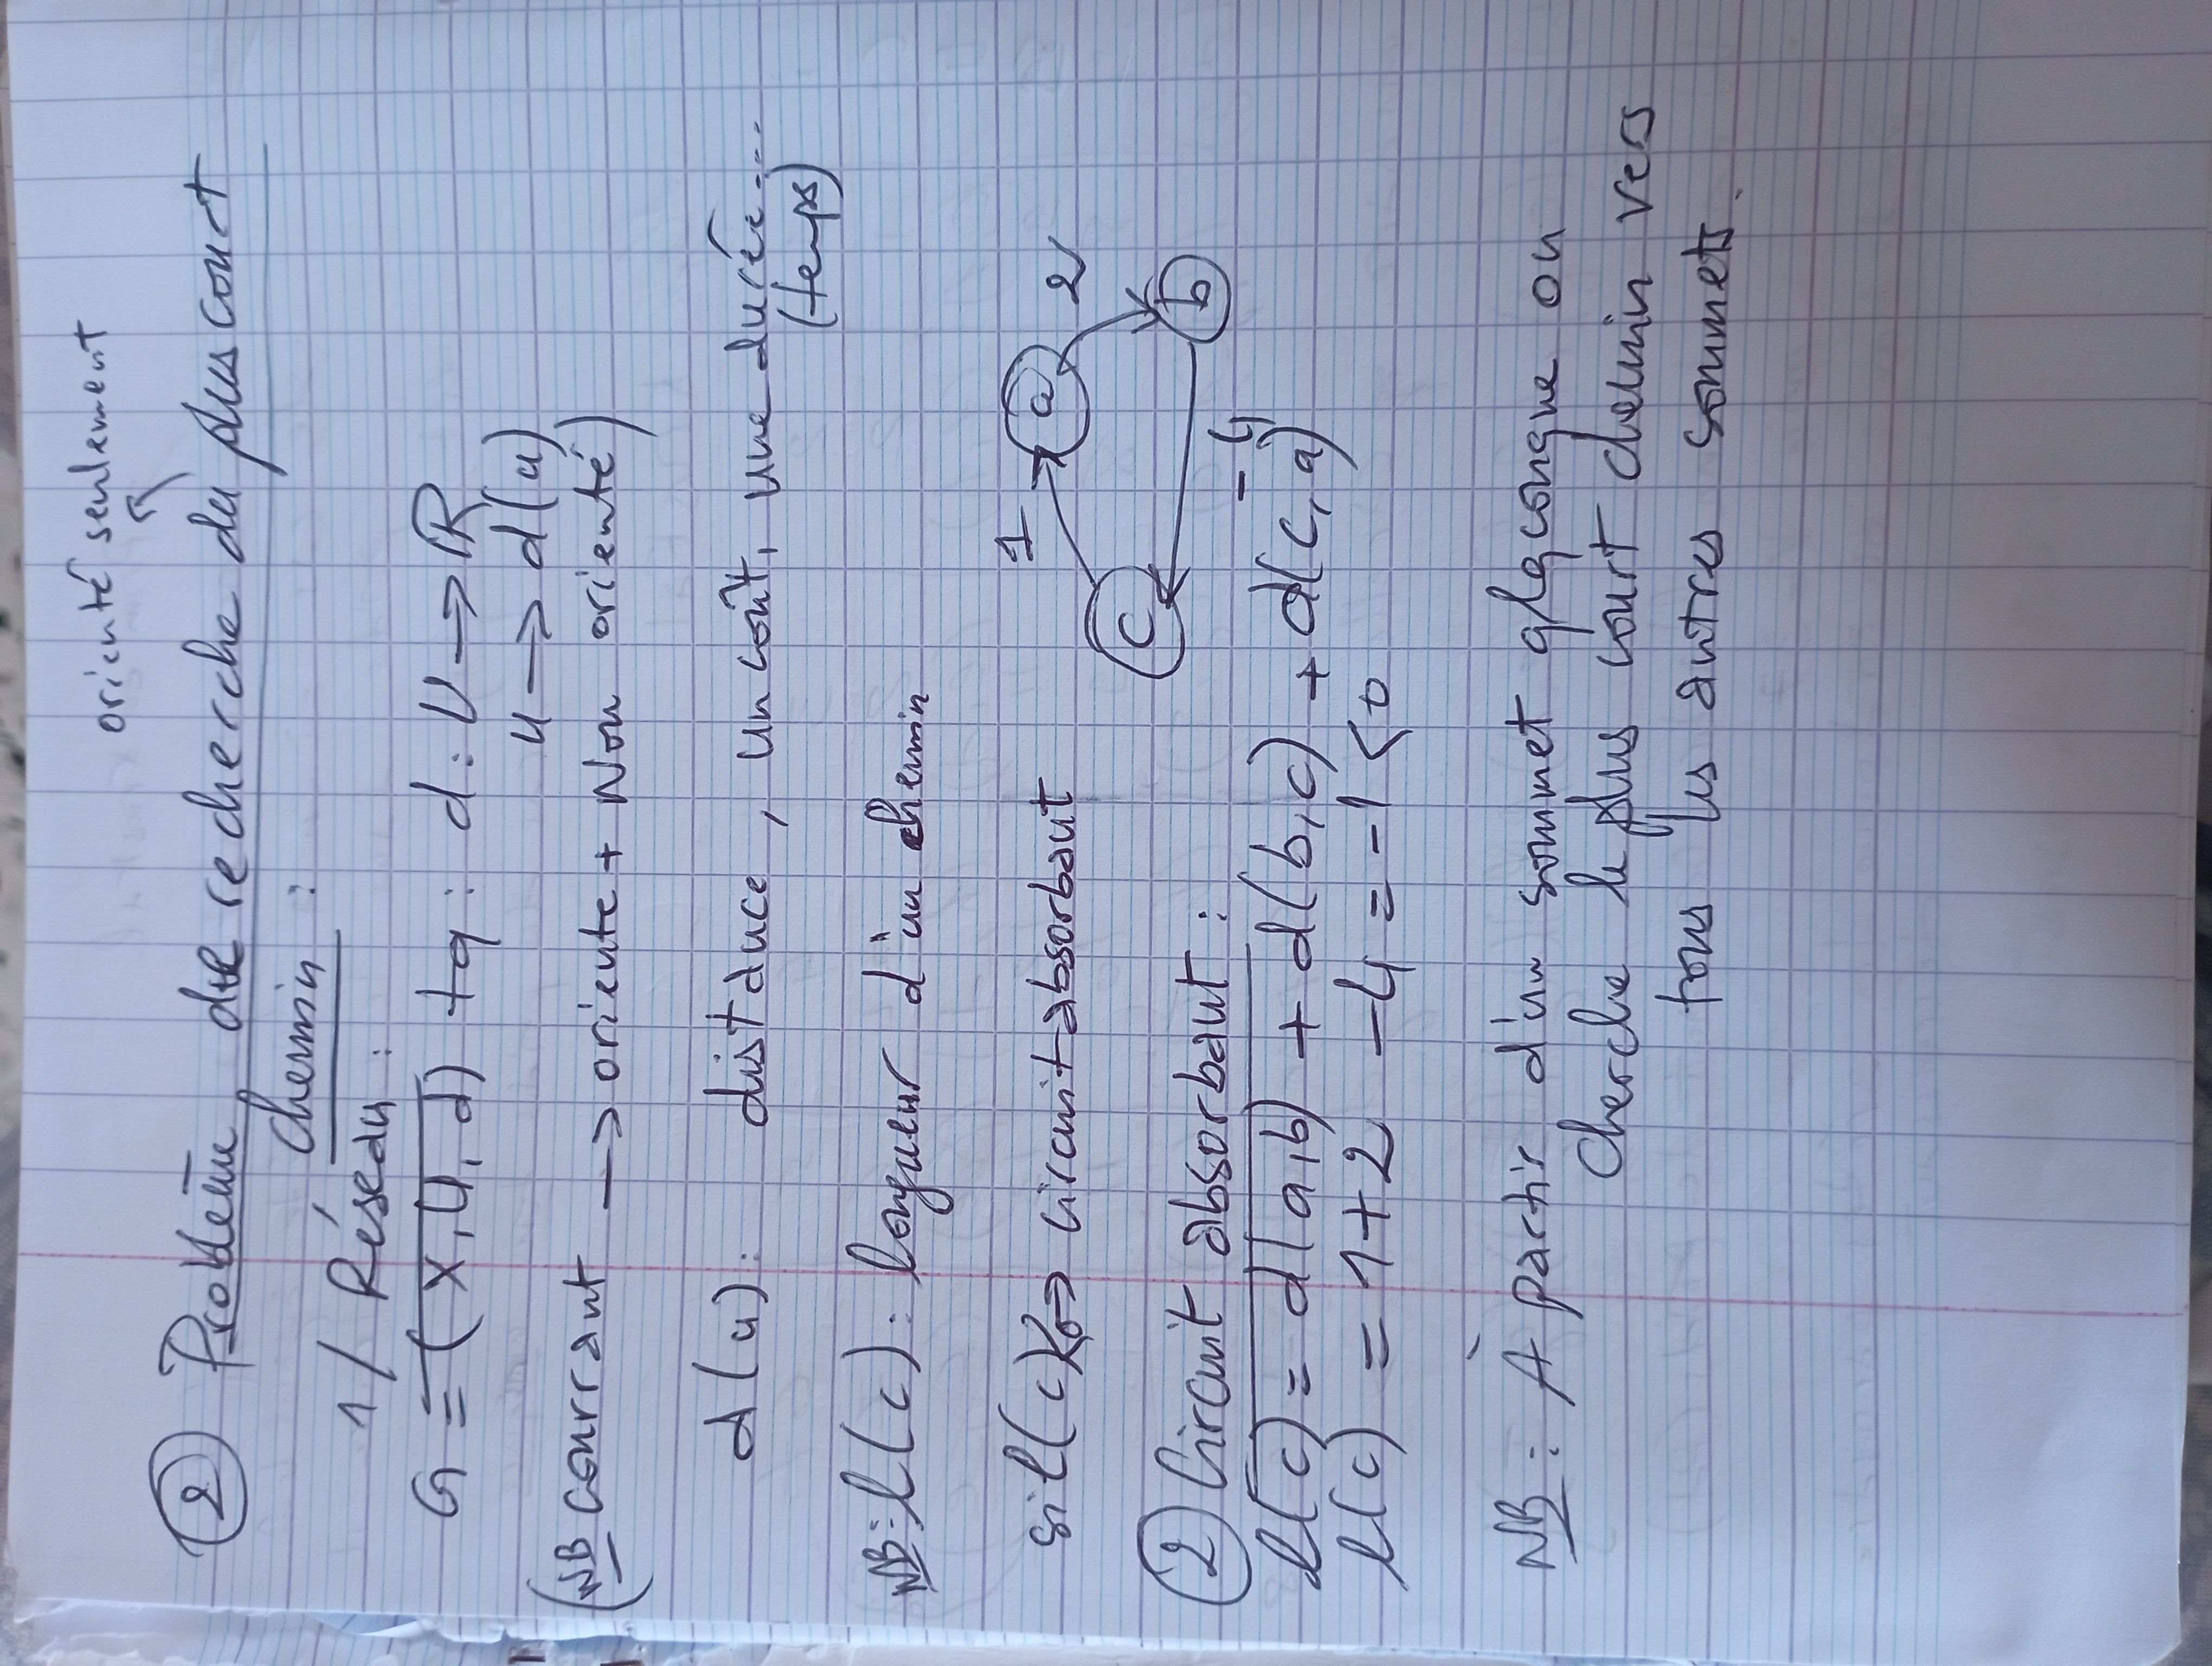 orienté seulement
② Problème de recherche du plus court
chemin :
1/ Résedu :
G = (X, U, d) tq : d : U → IR
u → d(u)
(NB courrant → oriente + Non orienté)
d(u) : distance, un coût, une durée ...
(temps)
NB : l(c) : longueur d'un chemin
si l(c)<0 => circuit absorbant
1
a
2
c
b
-4
② Circuit absorbant :
l(c) = d(a,b) + d(b,c) + d(c,a)
l(c) = 1+2 -4 = -1 < 0
NB : À partir d'un sommet qlqconque on
Cherche le plus court chemin vers
tous les autres sommets.